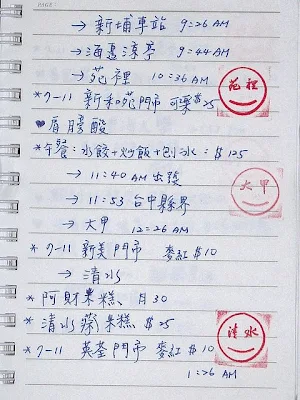 → 新埔車站 9:26 AM
→ 海邊涼亭 9:44 AM
→ 苑裡 10:36 AM
苑裡
*7-11 新和苑門市 可樂 $25
♥肩膀酸
*午餐:水餃+炒飯+刨冰:$125
→ 11:40 AM 出發
→ 11:53 台中縣界
大甲
→ 大甲 12:26 AM
*7-11 新美門市 麥紅 $10
→ 清水
*阿財米糕、月30
*清水 米糕 $25
清水
*7-11 英荃門市 麥紅 $10
1:26 AM